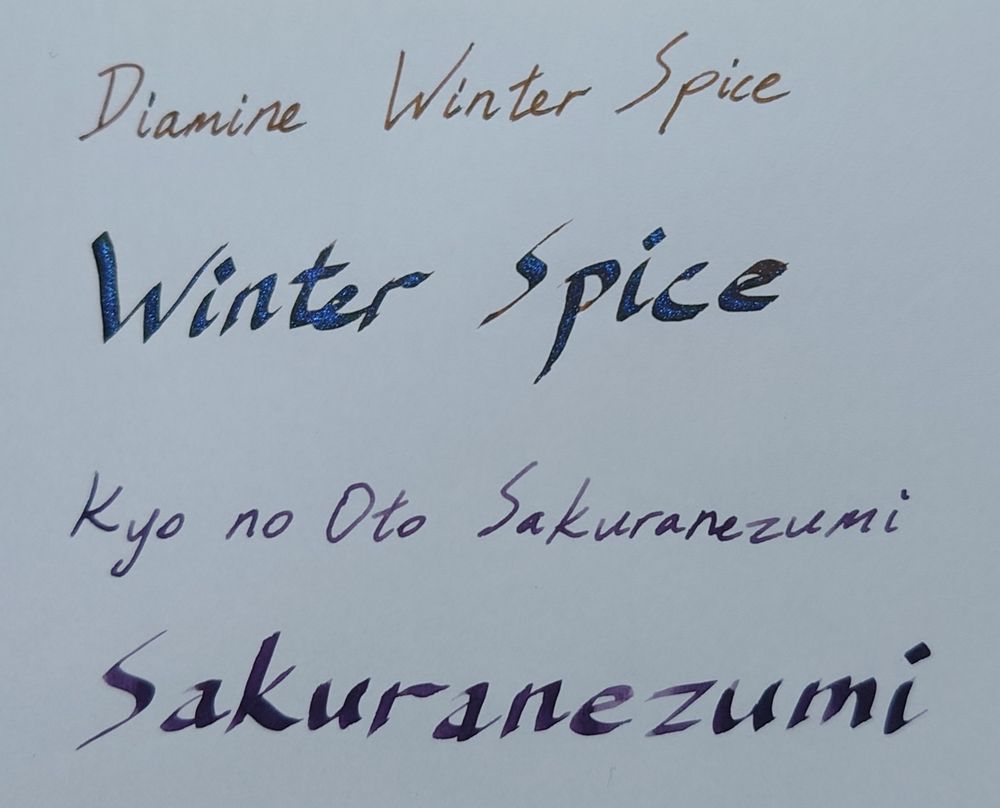 Diamine Winter Spice
Winter Spice
Kyo no Oto Sakuranezumi
Sakuranezumi